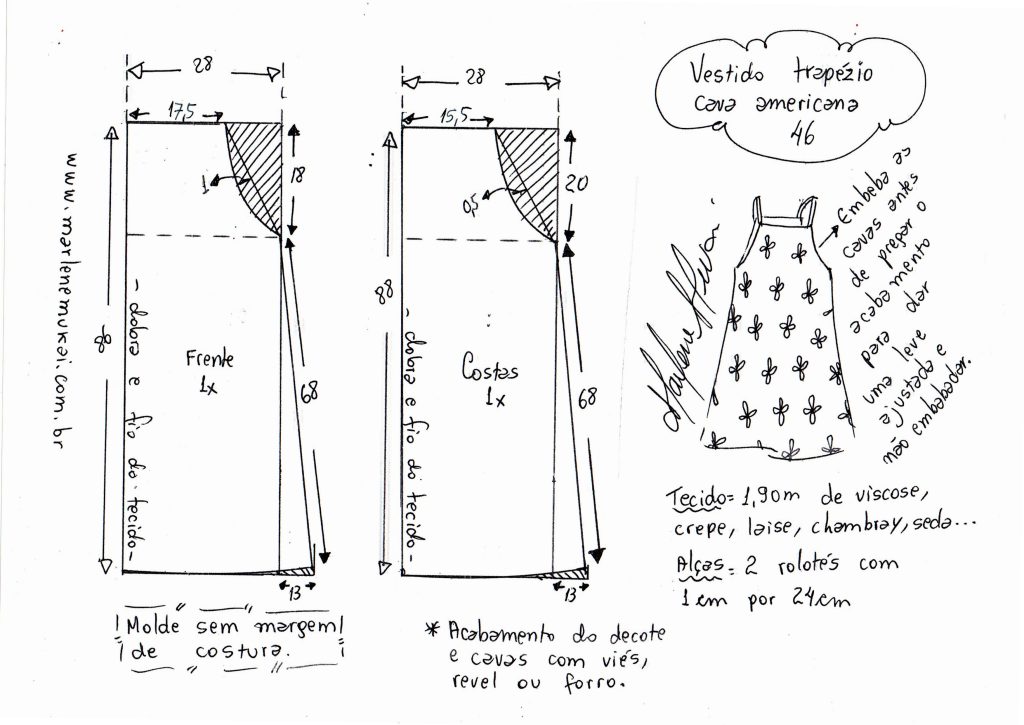 Vestido trapézio
cava americana
46
28
17,5
1
18
68
13
Frente
1x
- dobra e fio do tecido -
28
15,5
0,5
20
88
68
13
Costas
1x
- dobra e fio do tecido -
www.marlenemukai.com.br
Marlene Mukai
Embeba as
cavas antes
de prepar o
acabamento
para dar
uma leve
ajustada e
não embabadar.
Tecido = 1,90m de viscose,
crepe, laise, chambray, seda...
Alças = 2 rolotés com
1cm por 24cm
Molde sem margem
de costura.
* Acabamento do decote
e cavas com viés,
revel ou forro.